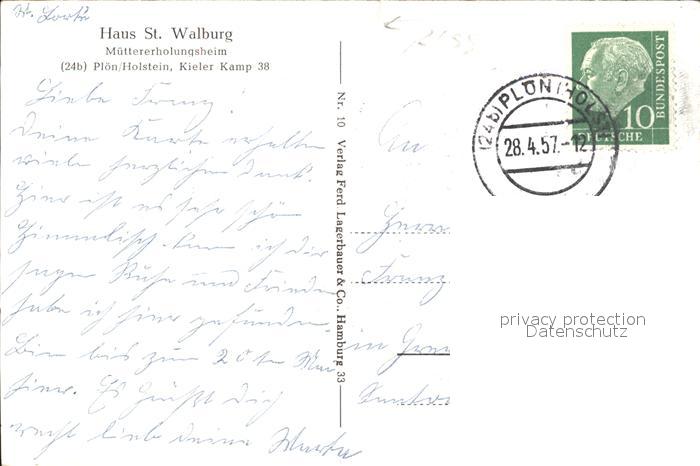 Haus St. Walburg
Müttererholungsheim
(24b) Plön/Holstein, Kieler Kamp 38
Liebe Franz!
Deine Karte erhalten
viele herzlichen Dank.
Hier ist es sehr schön
Himmlisch kann ich dir
sagen Ruhe und Frieden
habe ich hier gefunden.
Bin bis zum 20ten Mai
hier. Es grüßt dich
recht lieb deine Marta
Nr. 10 Verlag Ferd Lagerbauer & Co., Hamburg 33
(24b) PLÖN (HOLST
28.4.57.-12
10
DEUTSCHE
BUNDESPOST
An
Herrn
Franz
in
privacy protection
Datenschutz